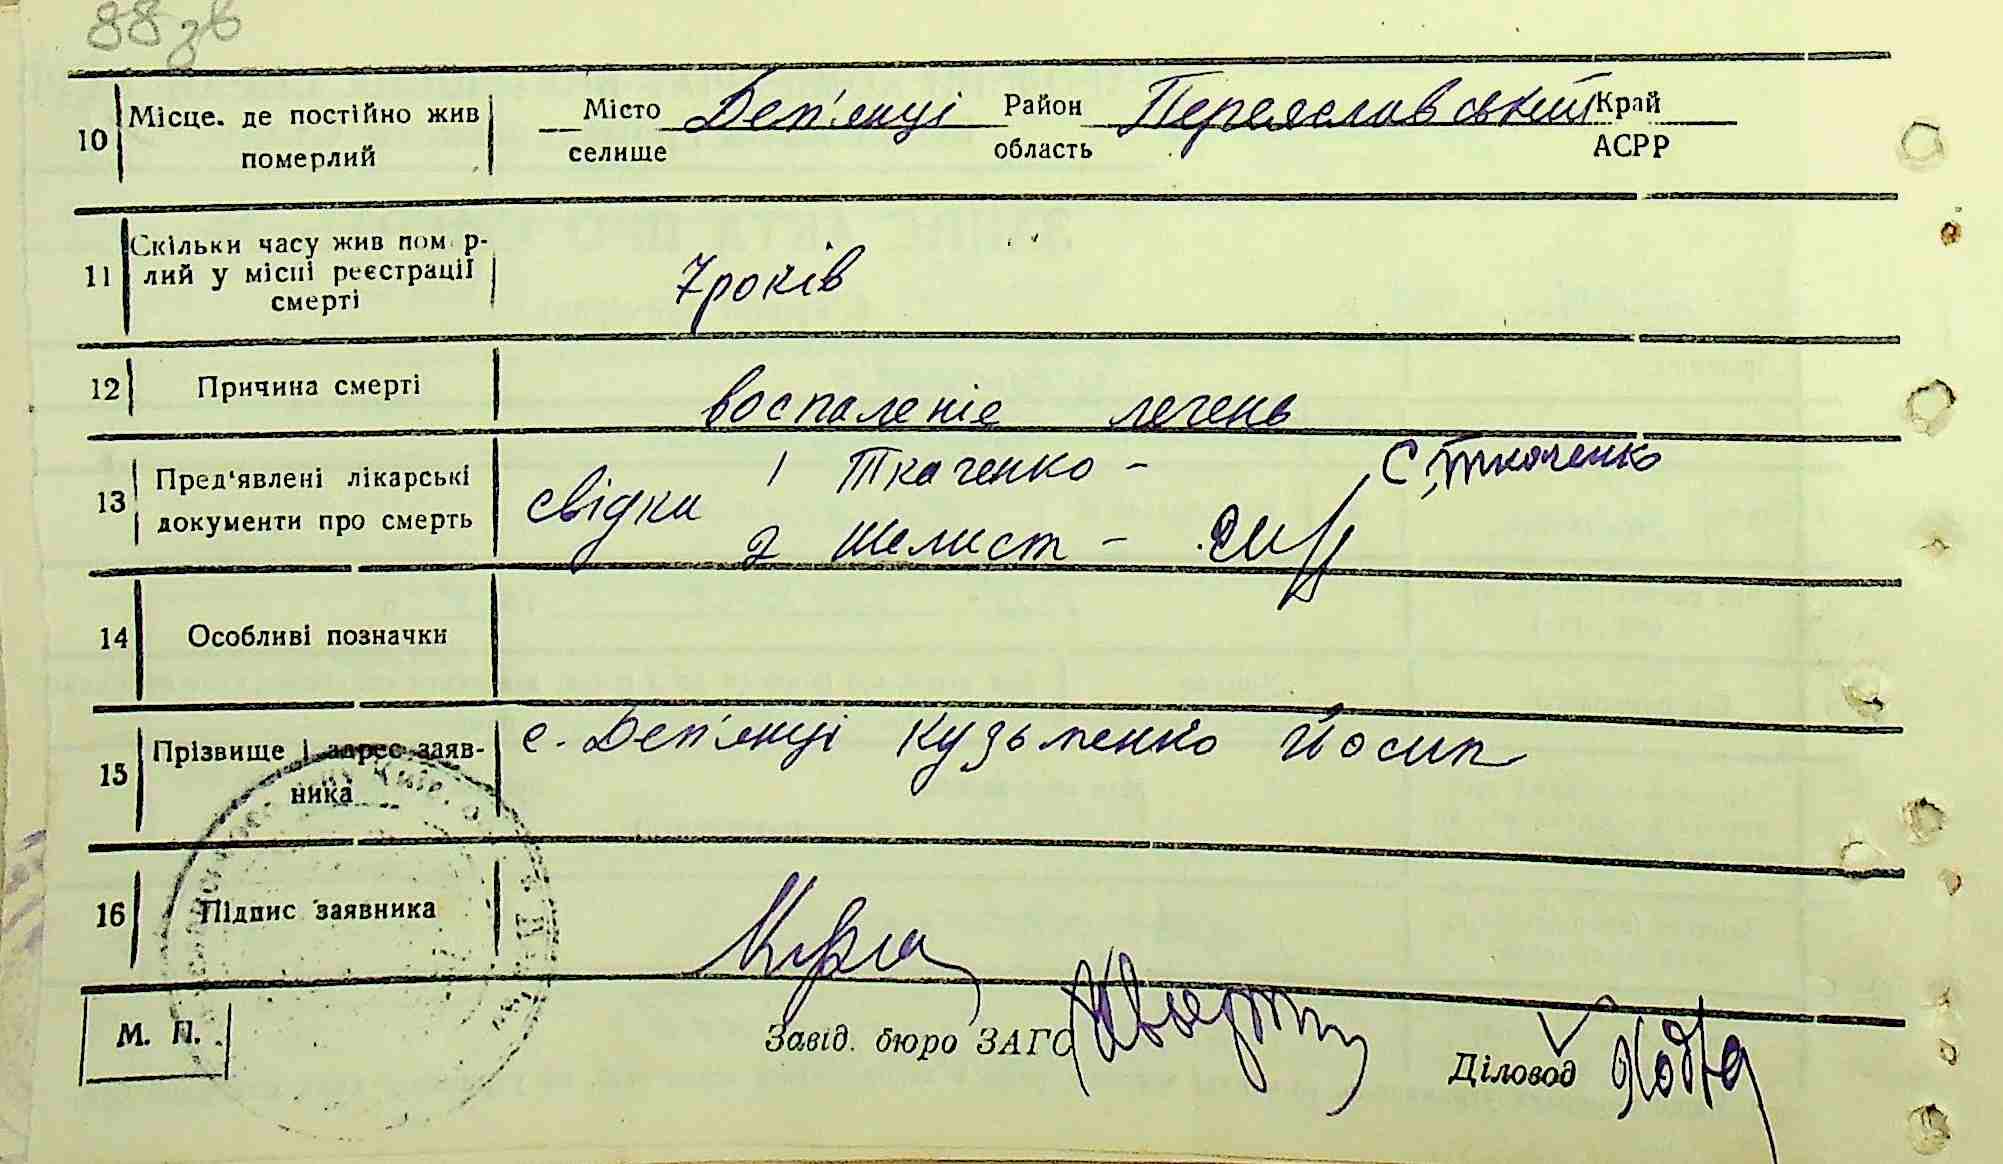 88зв
10 Місце. де постійно жив померлий Місто селище Деп'янці Район область Переяславський Край АСРР
11 Скільки часу жив померлий у місці реєстрації смерті 7 років
12 Причина смерті воспаленіє легень
13 Пред'явлені лікарські документи про смерть свідки 1 Ткаченко - С Ткаченко
2 Шелист -
14 Особливі позначки
15 Прізвище і адрес заявника с. Деп'янці Кузьменко Йосип
16 Підпис заявника
М. П.
Завід. бюро ЗАГС
Діловод